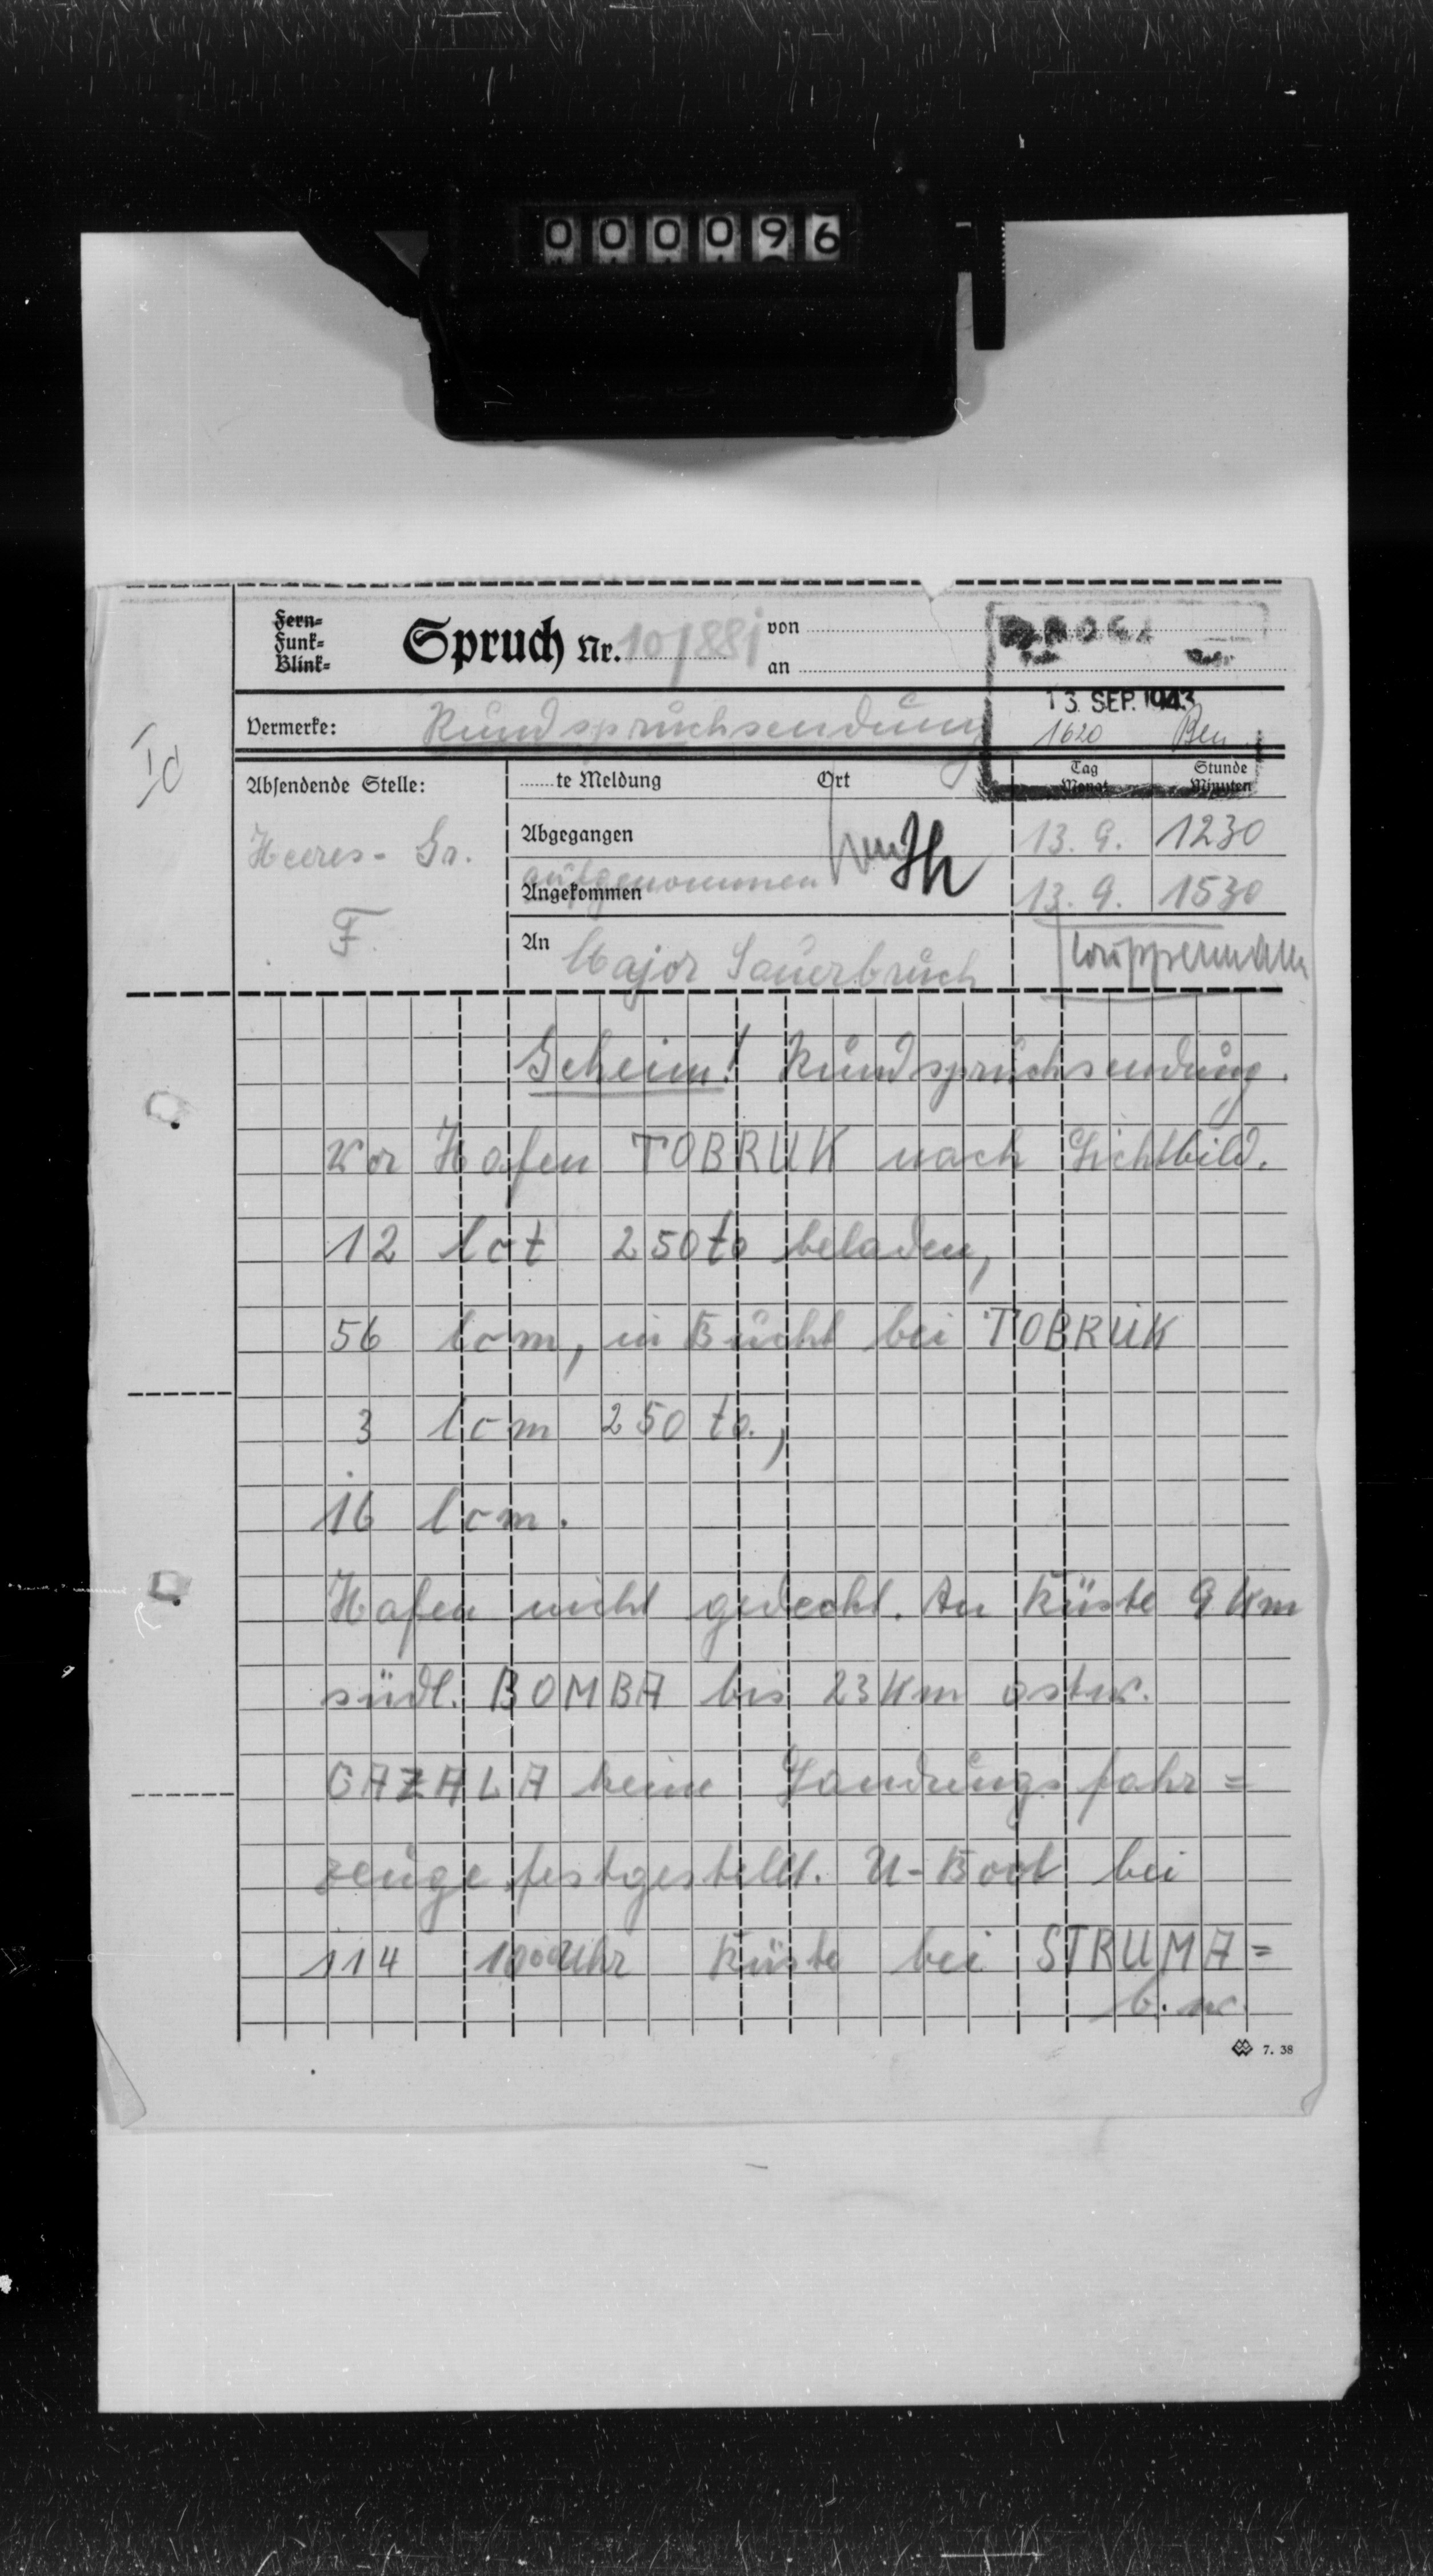 000096
Fern-
Funk-
Blink-
Spruch Nr. 10/881
von
an
13. SEP. 1943
1620
Vermerke: Rundspruchsendung
Ic
Absendende Stelle:
......te Meldung Ort Tag Monat Stunde Minuten
Heeres-Gr.
F.
Abgegangen 13. 9. 1230
aufgenommen
Angekommen 13. 9. 1530
An Major Sauerbruch
Geheim! Rundspruchsendung.
Vor Hafen TOBRUK nach Lichtbild.
12 lct 250 to beladen,
56 lcm, in Bucht bei TOBRUK
3 lcm 250 to.,
16 lcm.
Hafen nicht gedeckt. An Küste 9 Km
südl. BOMBA bis 23 Km ostw.
GAZALA keine Landungsfahr=
zeuge festgestellt. U-Boot bei
114 1000 Uhr Küste bei STRUMA=
b. w.
7. 38